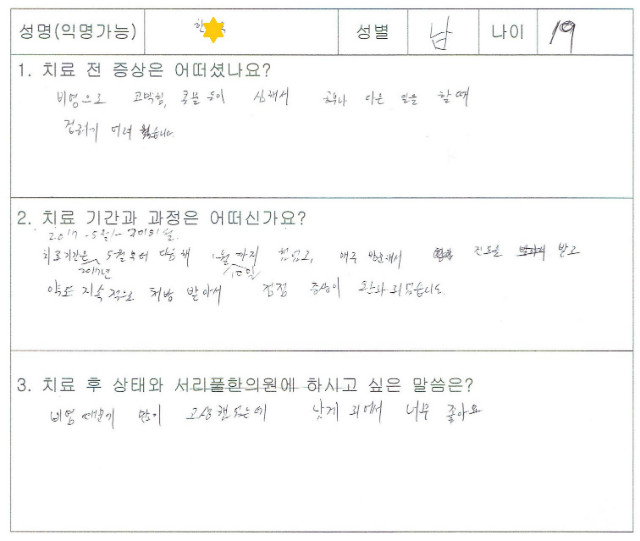 성명(익명가능) 한 성별 남 나이 19
1. 치료 전 증상은 어떠셨나요?
비염으로 코막힘, 콧물 등이 심해서 공부나 다른 일을 할 때
집중하기 어려웠습니다.
2. 치료 기간과 과정은 어떠신가요?
2017년
치료기간은 5월부터 다음해 1월까지 했고, 매주 진료를 받고
약도 지속적으로 처방 받아서 점점 증상이 완화되었습니다.
3. 치료 후 상태와 서리풀한의원에 하시고 싶은 말씀은?
비염 때문에 많이 고생했었는데 낫게 되어서 너무 좋아요